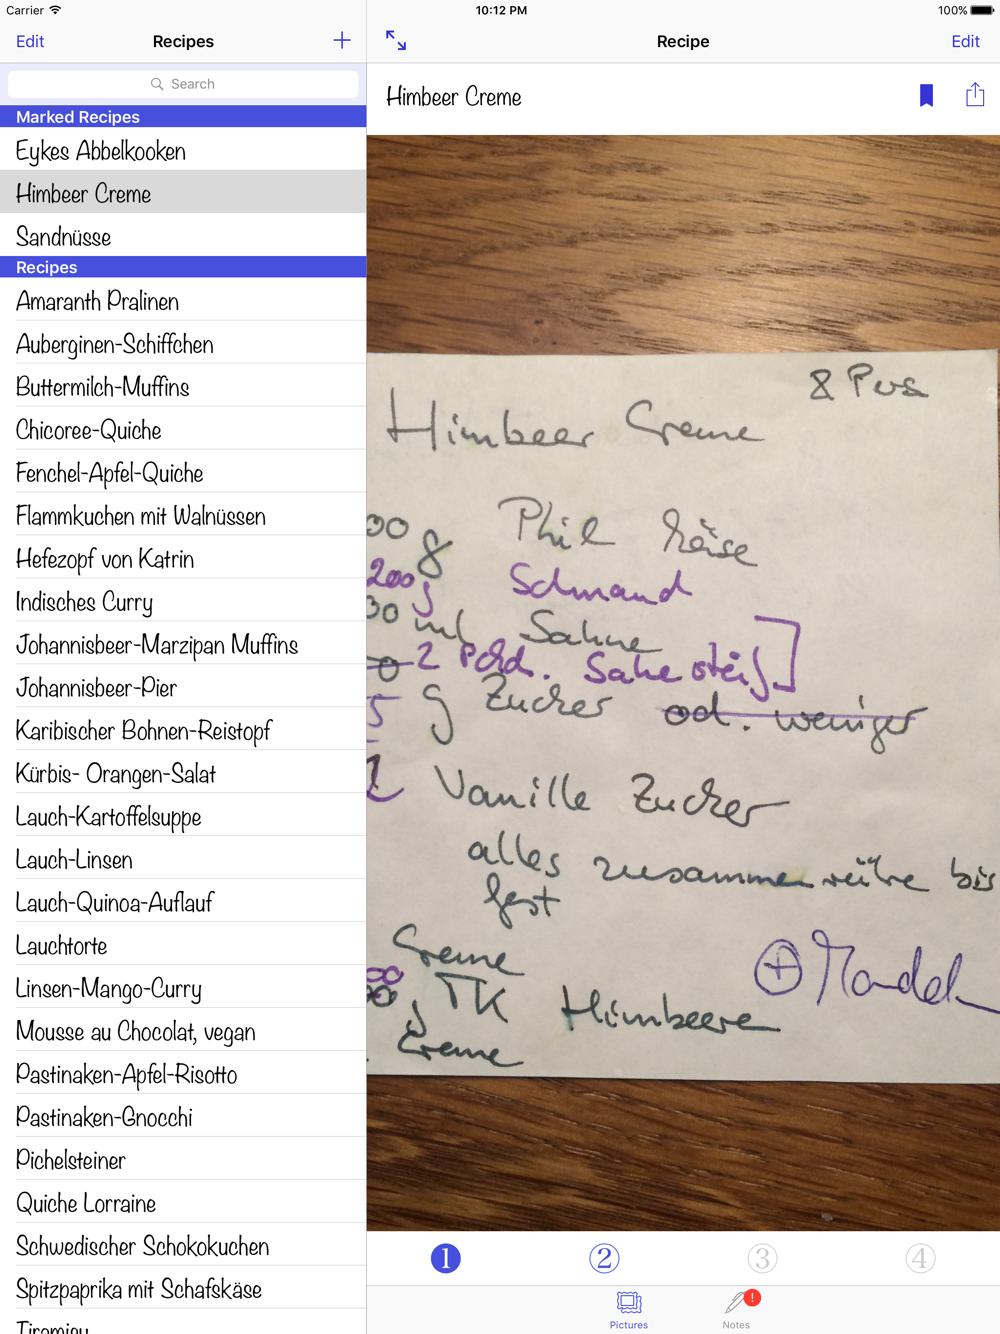 Carrier
10:12 PM
100%
Edit
Recipes
+
Search
Marked Recipes
Eykes Abbelkooken
Himbeer Creme
Sandnüsse
Recipes
Amaranth Pralinen
Auberginen-Schiffchen
Buttermilch-Muffins
Chicoree-Quiche
Fenchel-Apfel-Quiche
Flammkuchen mit Walnüssen
Hefezopf von Katrin
Indisches Curry
Johannisbeer-Marzipan Muffins
Johannisbeer-Pier
Karibischer Bohnen-Reistopf
Kürbis- Orangen-Salat
Lauch-Kartoffelsuppe
Lauch-Linsen
Lauch-Quinoa-Auflauf
Lauchtorte
Linsen-Mango-Curry
Mousse au Chocolat, vegan
Pastinaken-Apfel-Risotto
Pastinaken-Gnocchi
Pichelsteiner
Quiche Lorraine
Schwedischer Schokokuchen
Spitzpaprika mit Schafskäse
Tiramisu
Recipe
Edit
Himbeer Creme
8 Pers
Himbeer Creme
00 g Phil Käse
200 g Schmand
00 ml Sahne
2 Pckd. Sahnesteif
5 g Zucker od. weniger
1 Vanille Zucker
alles zusammenrühre bis
fest
Creme
00 g TK Himbeere
Creme
+ Mandel
1
2
3
4
Pictures
Notes
!